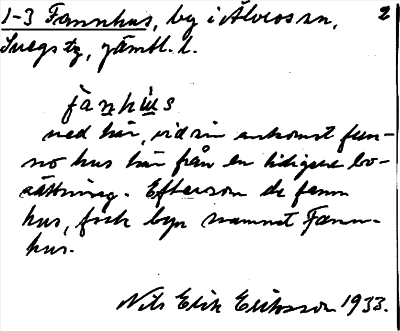 1-3 Fannhus, by i Älvros sn, 2
Svegs tg, Jämtl. l.
fanhus
ned här, vid sin ankomst fun-
no hus här från en tidigare bo-
sättning. Eftersom de fann
hus, fick byn namnet Fann-
hus.
Nils Erik Eriksson 1933.